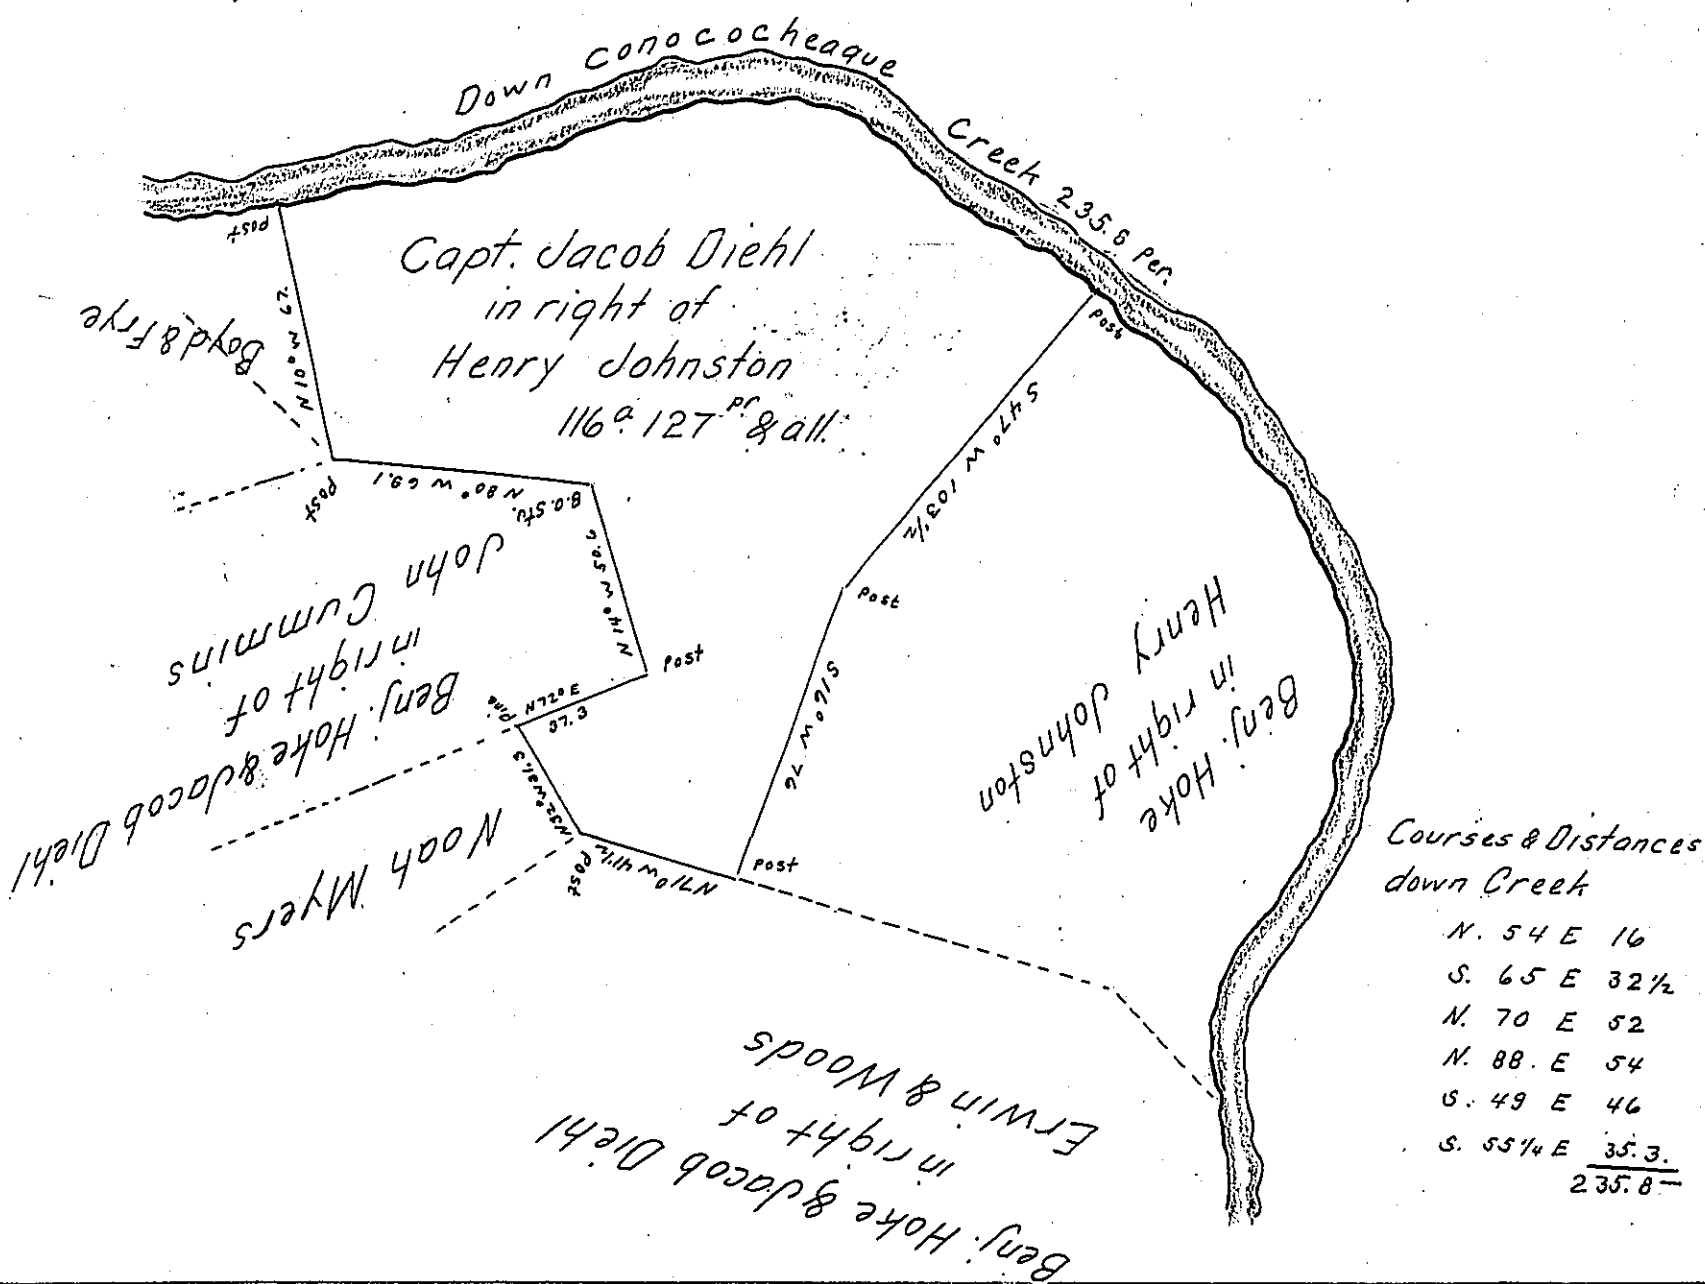 Down Conococheague Creek 235.8 Per.
Post
Capt. Jacob Diehl
in right of
Henry Johnston
116a. 127pr & all.
N10°W 67.
Boyd & Frye
Post
N 80° W 69.1
B.O. Stu.
N 14° W 50.6
Post
N 72° E
37.3
Pine
N32°W 31.3
Post
N71°W 41½
Post
S 16° W 76
Post
S 47° W 103½
Post
John Cummins
in right of
Benj. Hoke & Jacob Diehl
Noah Myers
Benj. Hoke
in right of
Henry Johnston
Benj. Hoke & Jacob Diehl
in right of
Erwin & Woods
Courses & Distances
down Creek
N. 54 E 16
S. 65 E 32½
N. 70 E 52
N. 88. E 54
S. 49 E 46
S. 55¼ E 35.3.
235.8